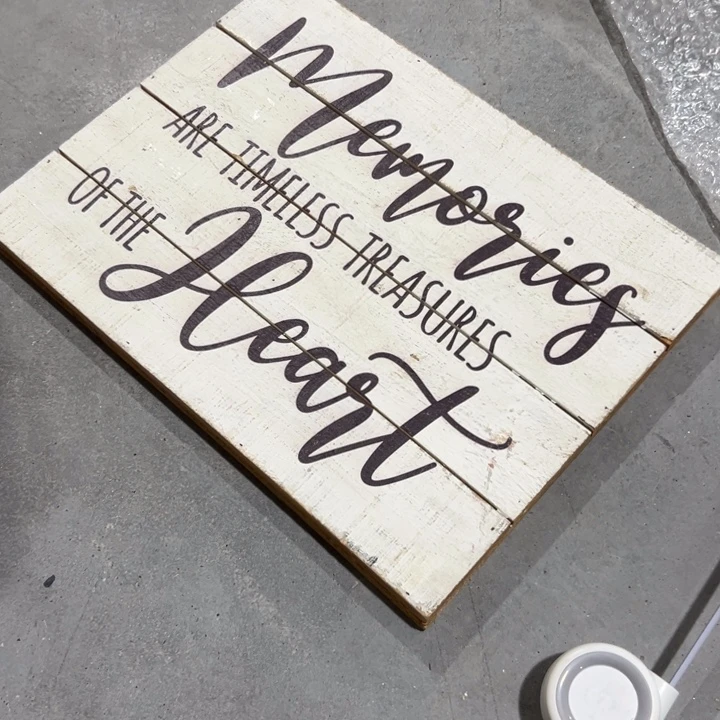 Memories
ARE TIMELESS TREASURES
OF THE Heart